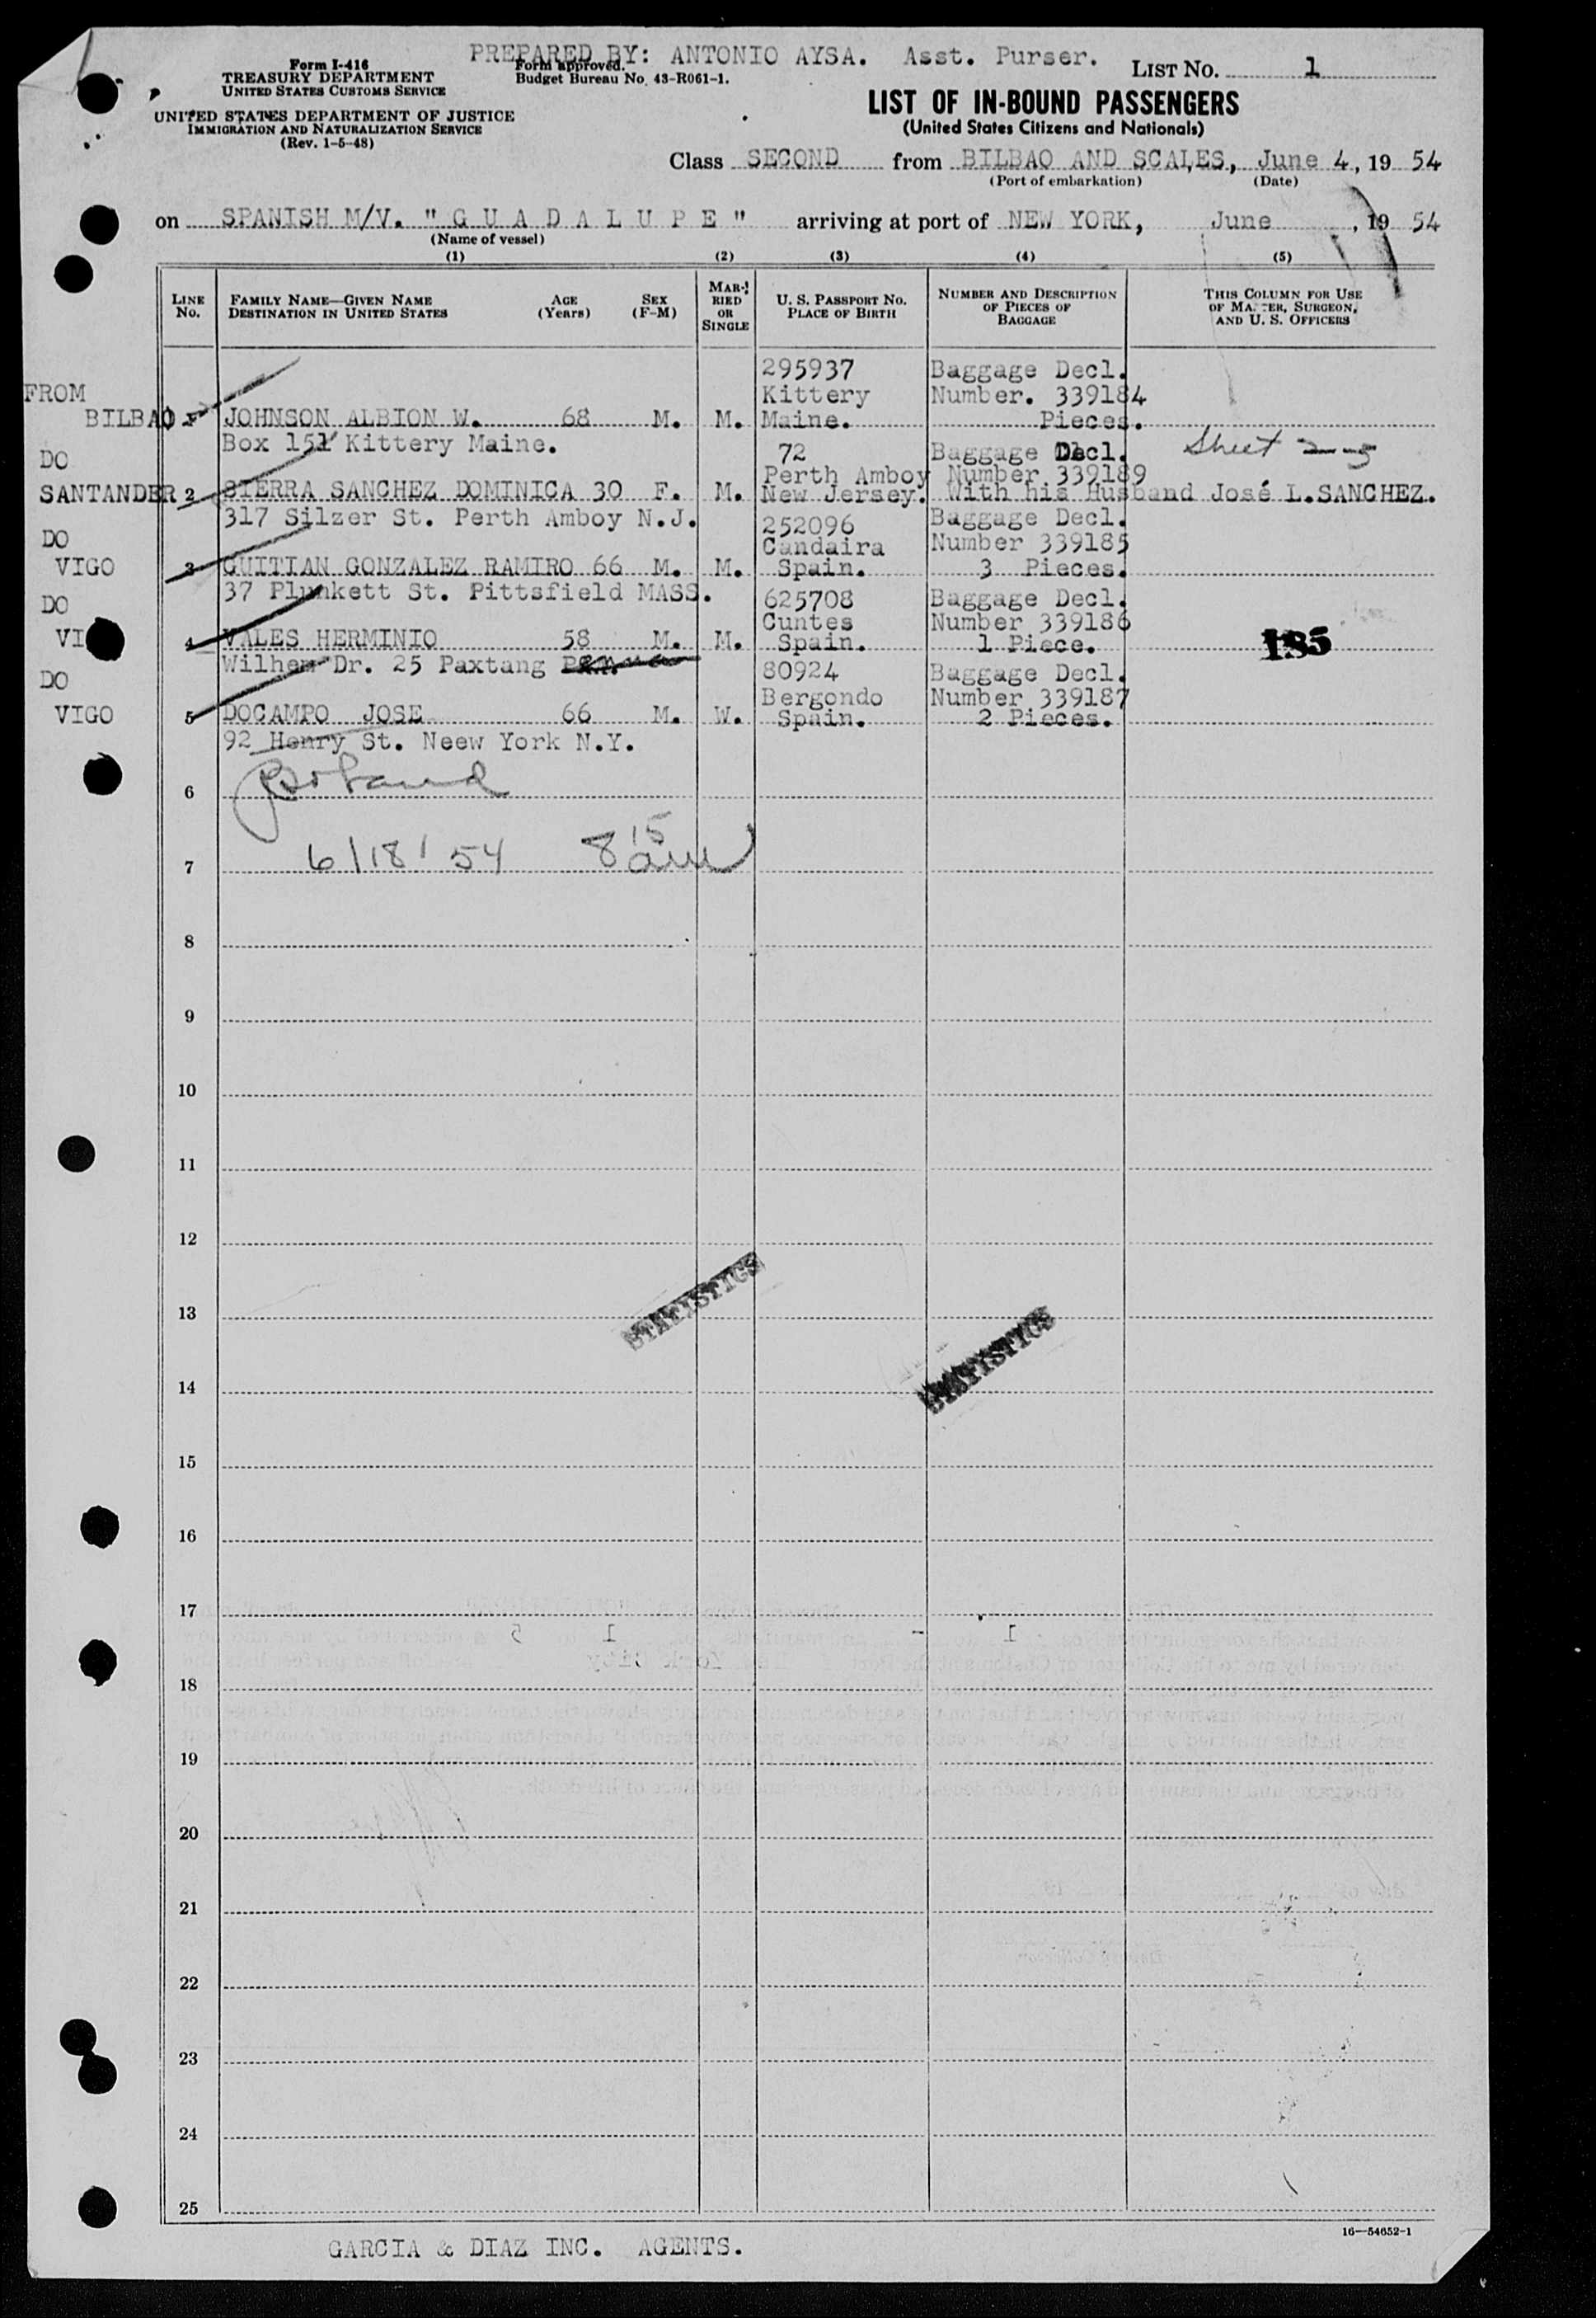 PREPARED BY: ANTONIO AYSA. Asst. Purser.
Form I-416
TREASURY DEPARTMENT
UNITED STATES CUSTOMS SERVICE
Form approved.
Budget Bureau No. 43-R061-1.
LIST NO. 1
UNITED STATES DEPARTMENT OF JUSTICE
IMMIGRATION AND NATURALIZATION SERVICE
(Rev. 1-5-48)
LIST OF IN-BOUND PASSENGERS
(United States Citizens and Nationals)
Class SECOND from BILBAO AND SCALES, June 4, 19 54
(Port of embarkation) (Date)
on SPANISH M/V. "G U A D A L U P E" arriving at port of NEW YORK, June , 19 54
(Name of vessel)
(1) (2) (3) (4) (5)
LINE No.
FAMILY NAME—GIVEN NAME
DESTINATION IN UNITED STATES
AGE
(Years)
SEX
(F-M)
MARRIED OR SINGLE
U. S. PASSPORT NO.
PLACE OF BIRTH
NUMBER AND DESCRIPTION
OF PIECES OF
BAGGAGE
THIS COLUMN FOR USE
OF MASTER, SURGEON,
AND U. S. OFFICERS
295937 Baggage Decl.
FROM Kittery Number. 339184
BILBAO JOHNSON ALBION W. 68 M. M. Maine. Pieces.
Box 151 Kittery Maine.
DO 72 Baggage Decl. Sheet 2-5
Perth Amboy Number 339189
SANTANDER 2 SIERRA SANCHEZ DOMINICA 30 F. M. New Jersey. With his Husband José L.SANCHEZ.
317 Silzer St. Perth Amboy N.J. 252096 Baggage Decl.
DO Candaira Number 339185
VIGO 3 GUITIAN GONZALEZ RAMIRO 66 M. M. Spain. 3 Pieces.
37 Plunkett St. Pittsfield MASS. 625708 Baggage Decl.
DO Cuntes Number 339186
VI 4 VALES HERMINIO 58 M. M. Spain. 1 Piece. 185
Wilhem Dr. 25 Paxtang 80924 Baggage Decl.
DO Bergondo Number 339187
VIGO 5 DOCAMPO JOSE 66 M. W. Spain. 2 Pieces.
92 Henry St. Neew York N.Y.
6
7 6/18/54 8 15 am
8
9
10
11
12
13 STATISTICS
14 STATISTICS
15
16
17
18
19
20
21
22
23
24
25
16—54652-1
GARCIA & DIAZ INC. AGENTS.